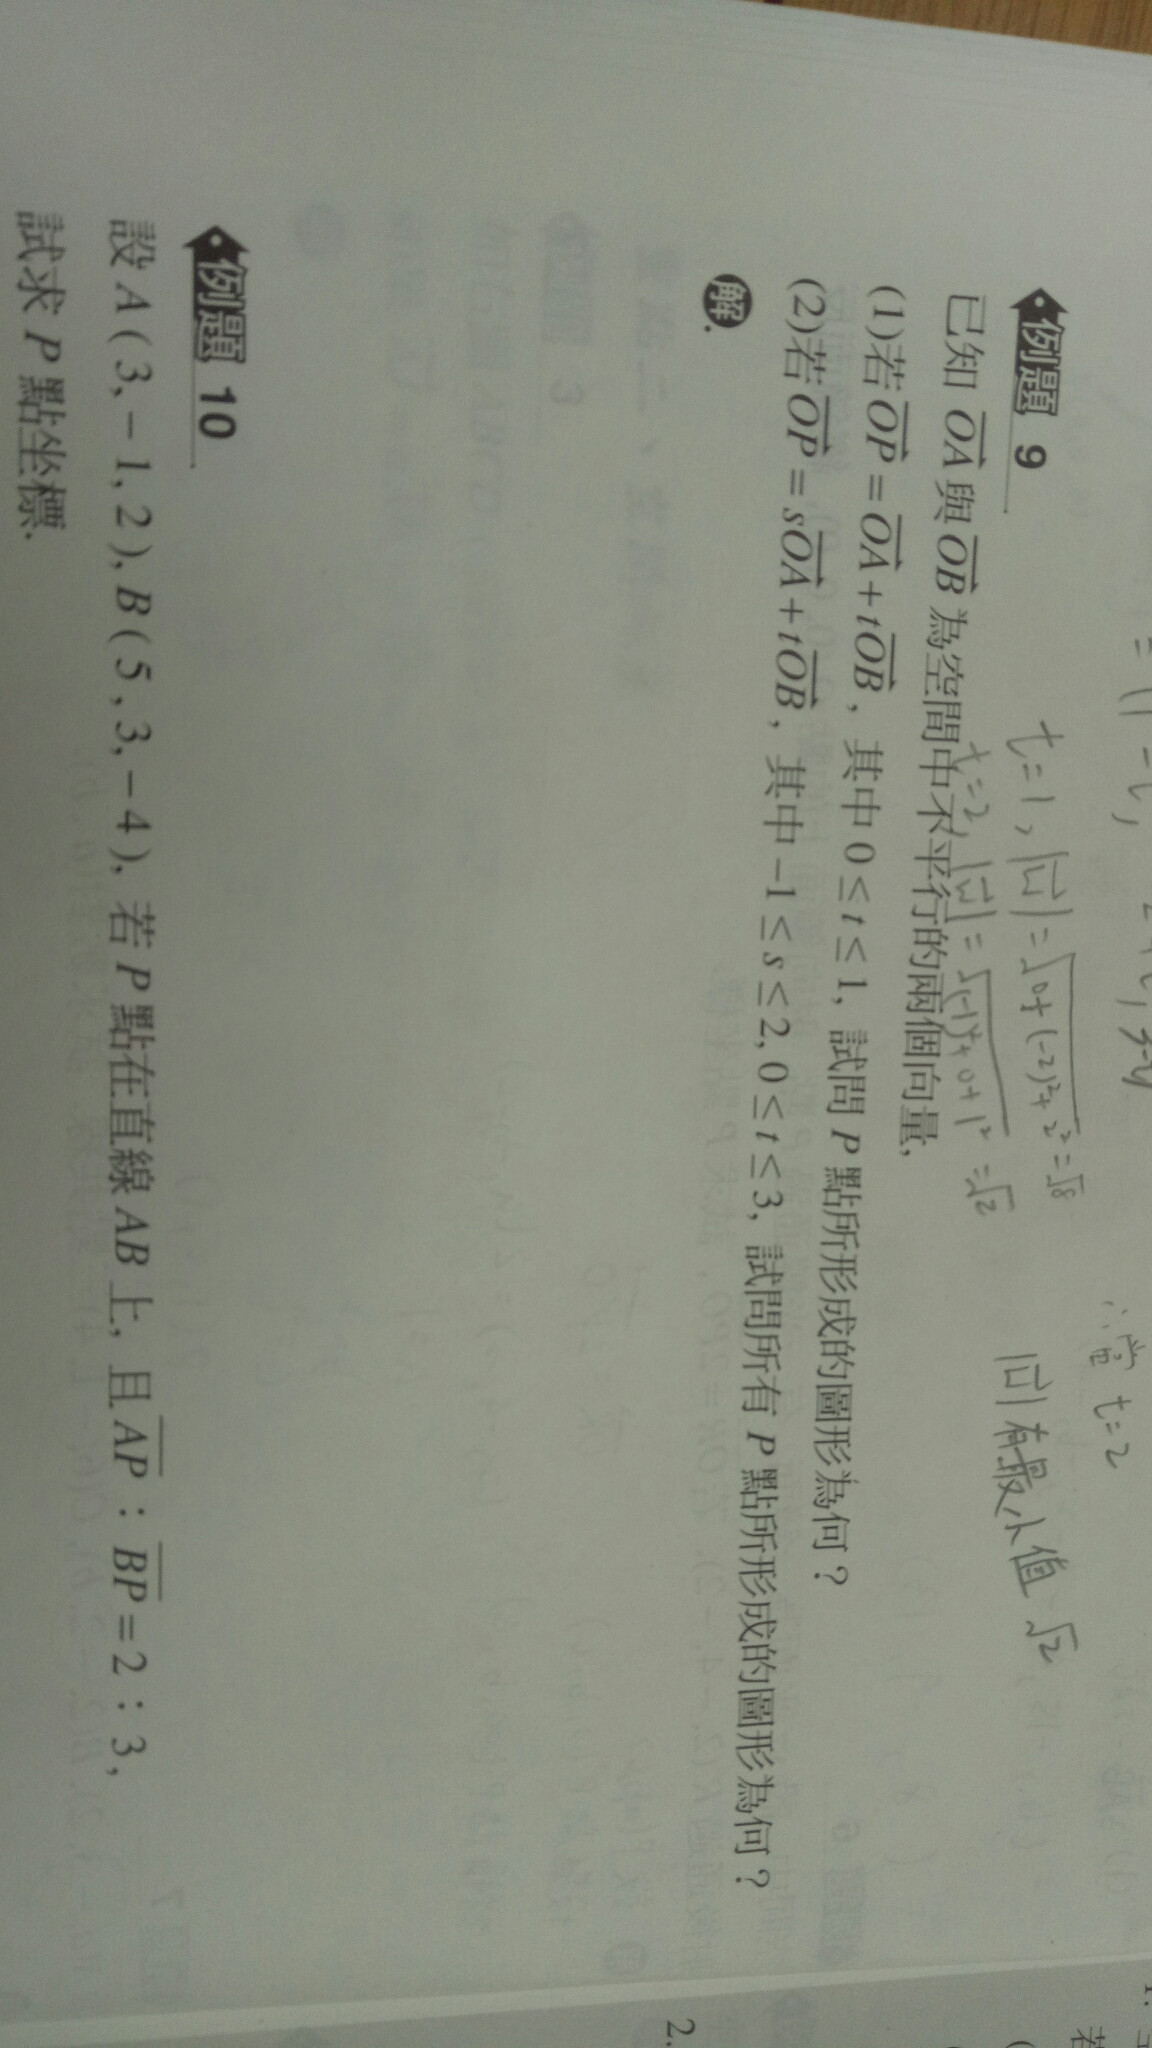 = (1-t,
∴當 t=2
t=1, |u⃗|=√0+(-2)²+2²=√8
t=2, |u⃗|=√(-1)²+0+1²=√2
|u⃗|有最小值 √2
例題 9
已知 OA⃗ 與 OB⃗ 為空間中不平行的兩個向量,
(1)若 OP⃗ = OA⃗ + tOB⃗, 其中 0 ≤ t ≤ 1, 試問 P 點所形成的圖形為何？
(2)若 OP⃗ = sOA⃗ + tOB⃗, 其中 -1 ≤ s ≤ 2, 0 ≤ t ≤ 3, 試問所有 P 點所形成的圖形為何？
解.
例題 10
設 A ( 3, -1, 2 ), B ( 5, 3, -4 ), 若 P 點在直線 AB 上, 且 A̅P̅ : B̅P̅ = 2 : 3,
試求 P 點坐標.
1.
若
(
2.